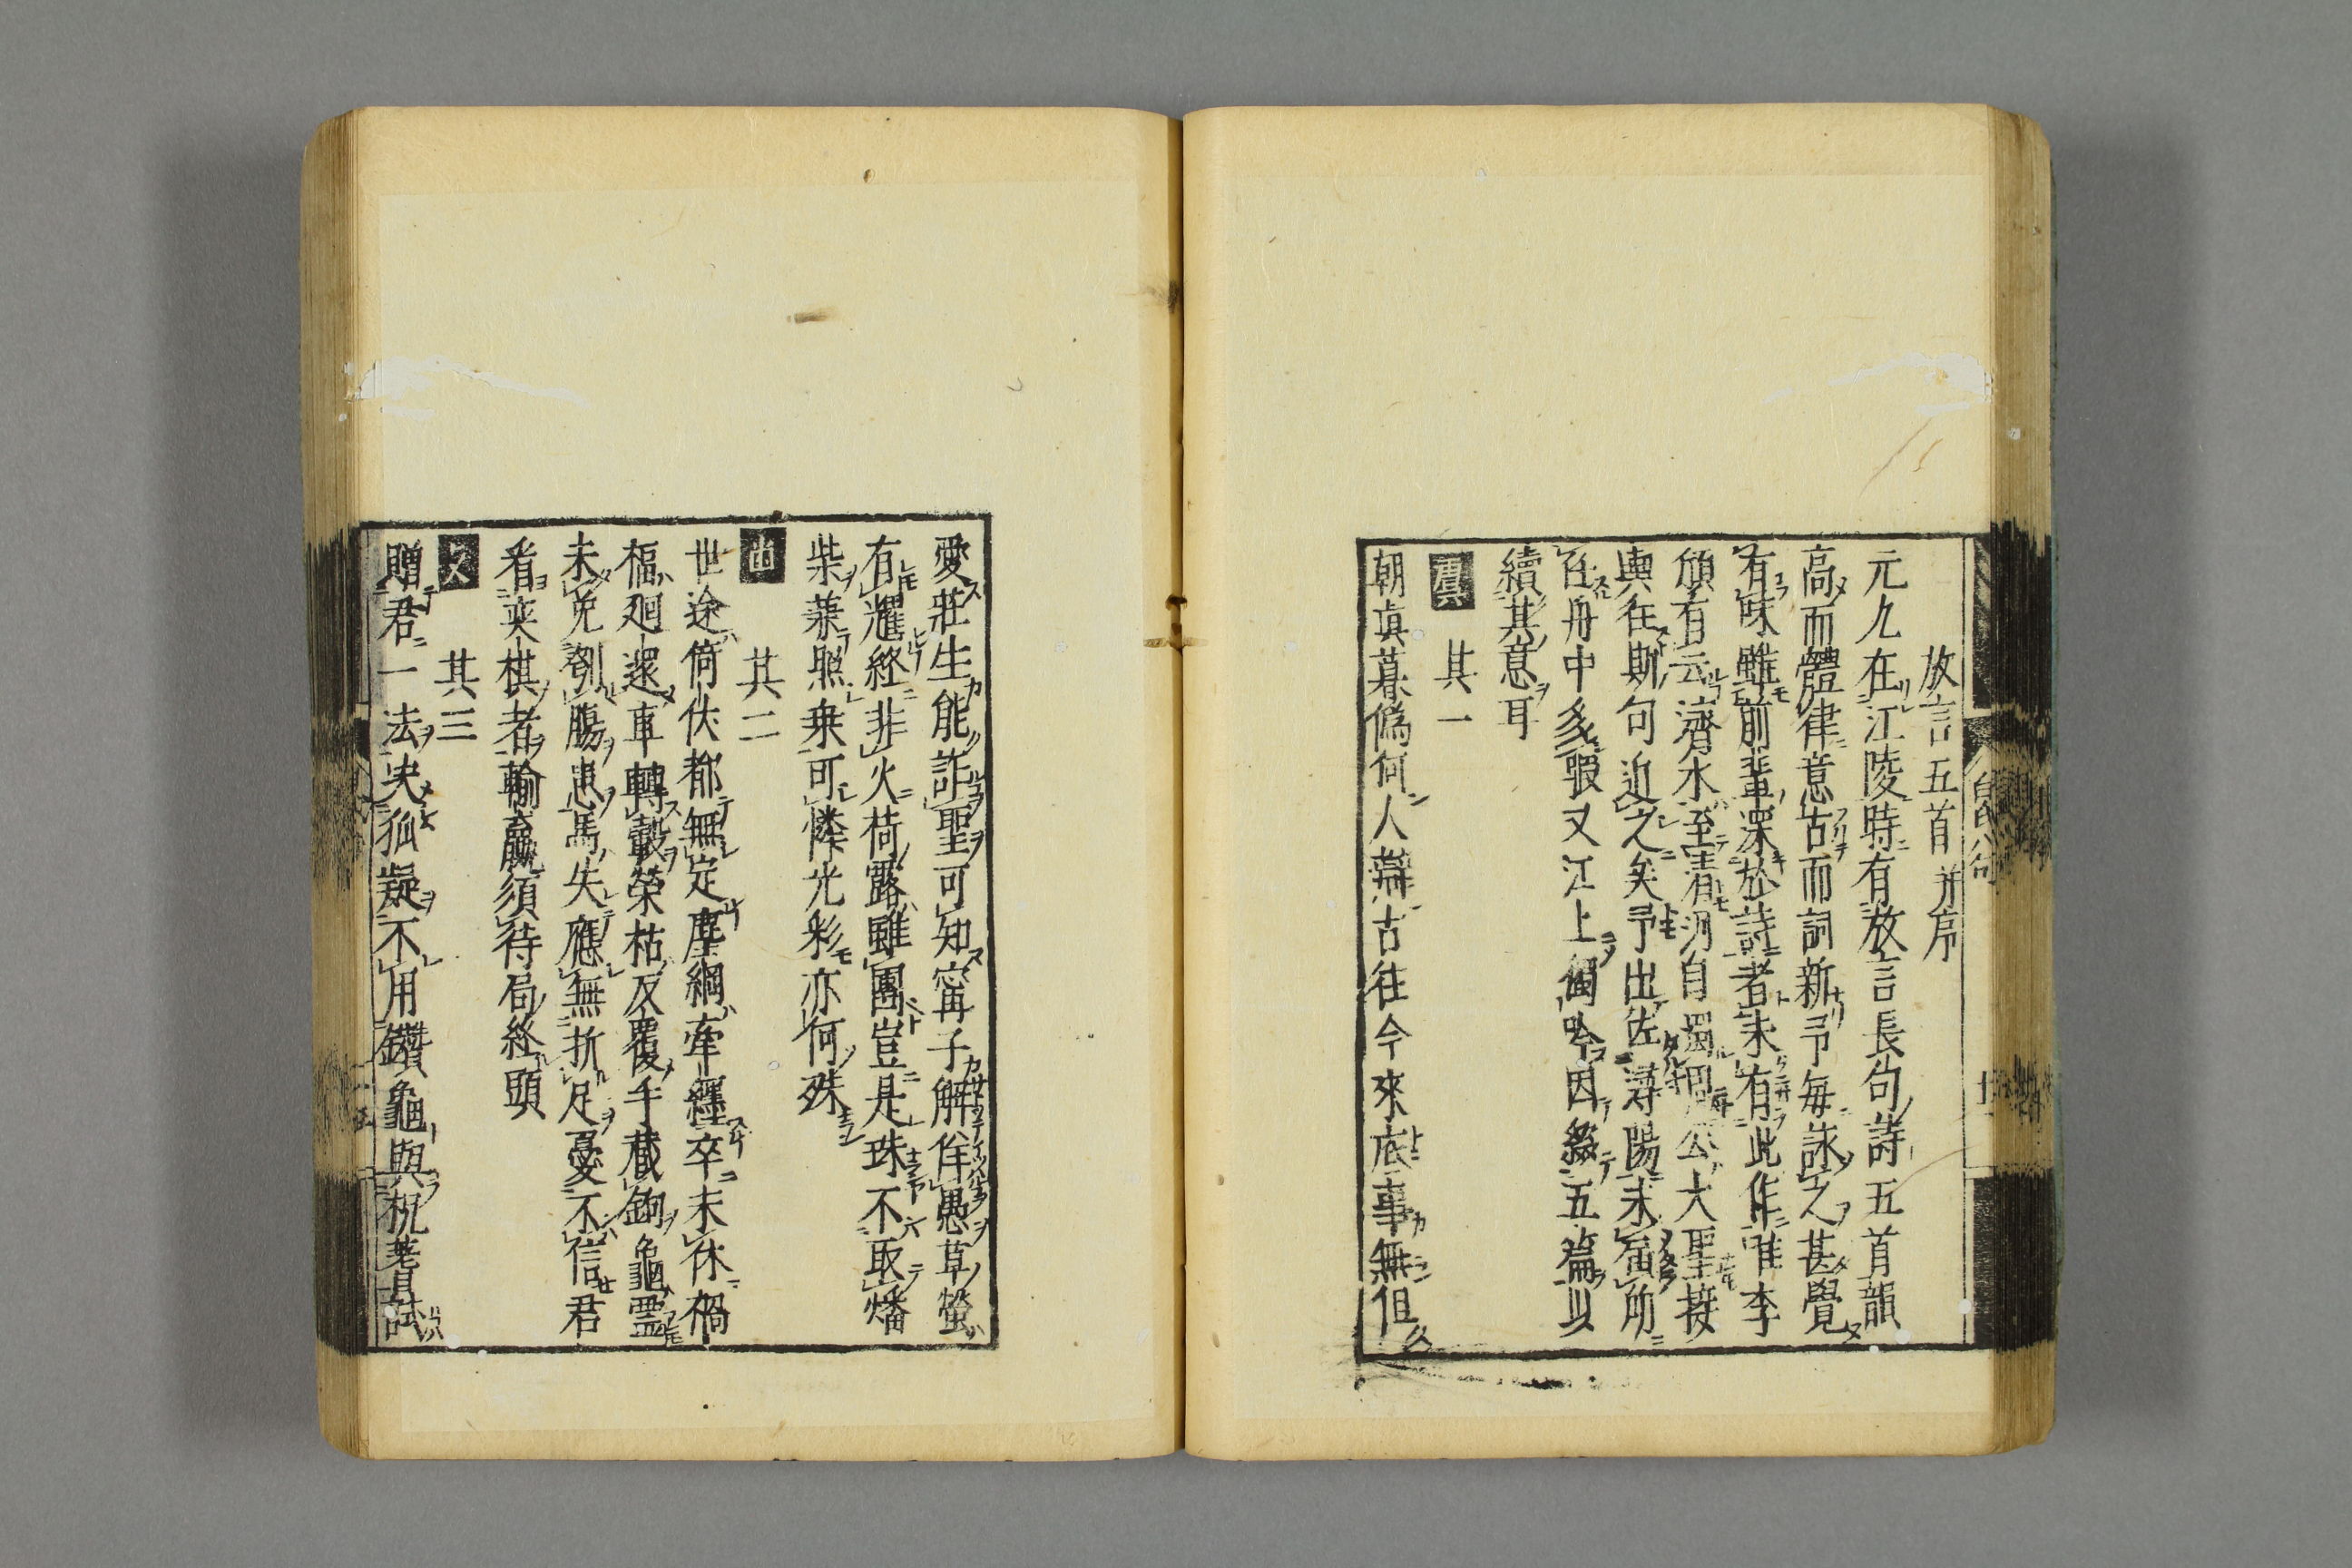 放言五首 并序
元九在江陵時有放言長句詩五首韻
高而體律意古而詞新予毎詠之甚覺
有味雖前輩深於詩者未有此作唯李
頎有云濟水至清河自濁周公大聖接
輿狂斯句近之矣予出佐潯陽未届所
任舟中多暇又江上獨吟因綴五篇以
續其意耳
虞 其一
朝真暮偽何人辨古往今來底事無但
愛莊生能詐聖可知寗子解佯愚草螢
有耀終非火荷露雖團豈是珠不取燔
柴兼照乗可憐光彩亦何殊
尤 其二
世途倚伏都無定塵網牽纏卒未休禍
福廻還車轉轂榮枯反覆手藏鉤龜霊
未免刳膓患馬失應無折足憂不信君
看奕棋者輸贏須待局終頭
支 其三
贈君一法决狐疑不用鑚龜與祝蓍試